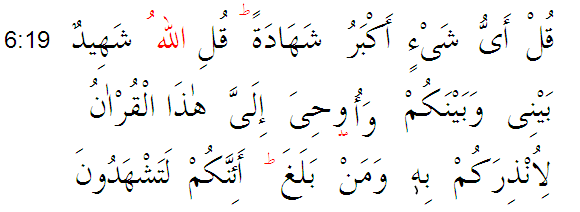 6:19 قُلْ أَىُّ شَىْءٍ أَكْبَرُ شَهَادَةً ۖ قُلِ اللّٰهُ شَهِيدٌ
بَيْنِى وَبَيْنَكُمْ وَأُوحِىَ إِلَىَّ هٰذَا الْقُرْاٰنُ
لِاُنْذِرَكُمْ بِهٖ وَمَنْ بَلَغَ ۗ أَئِنَّكُمْ لَتَشْهَدُونَ